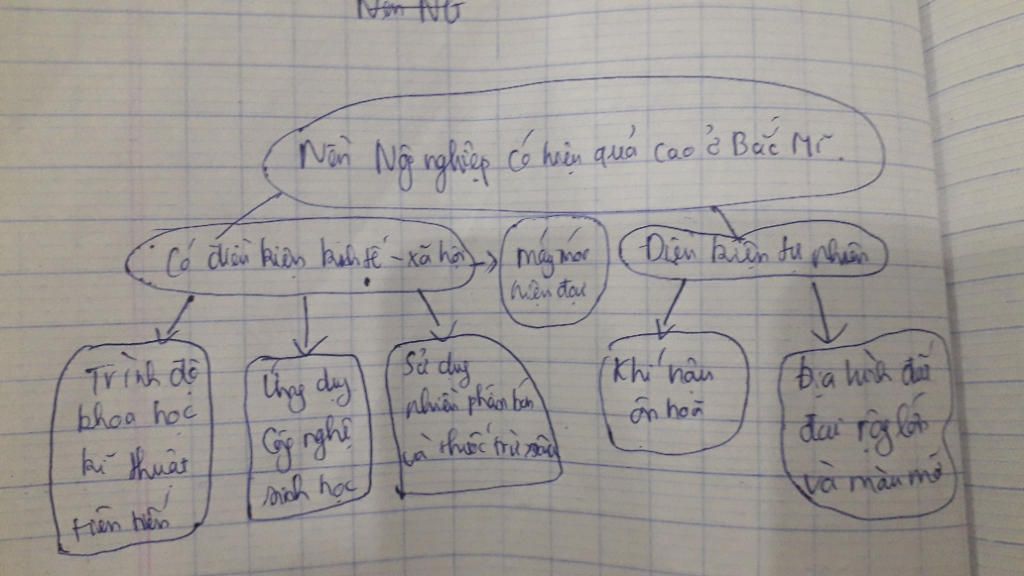 Nền NG
Nền Nôg nghiệp có hiệu quả cao ở Bắc Mĩ.
Có điều kiện kinh tế - xã hội
máy móc
hiện đại
Điều kiện tự nhiên
Trình độ
khoa học
kĩ thuật
tiên tiến
Ứng dụg
Côg nghệ
sinh học
Sử dụg
nhiều phân bón
và thuốc trừ sâu
Khí hậu
ôn hoà
Địa hình đất
đai rộg lớn
và màu mỡ